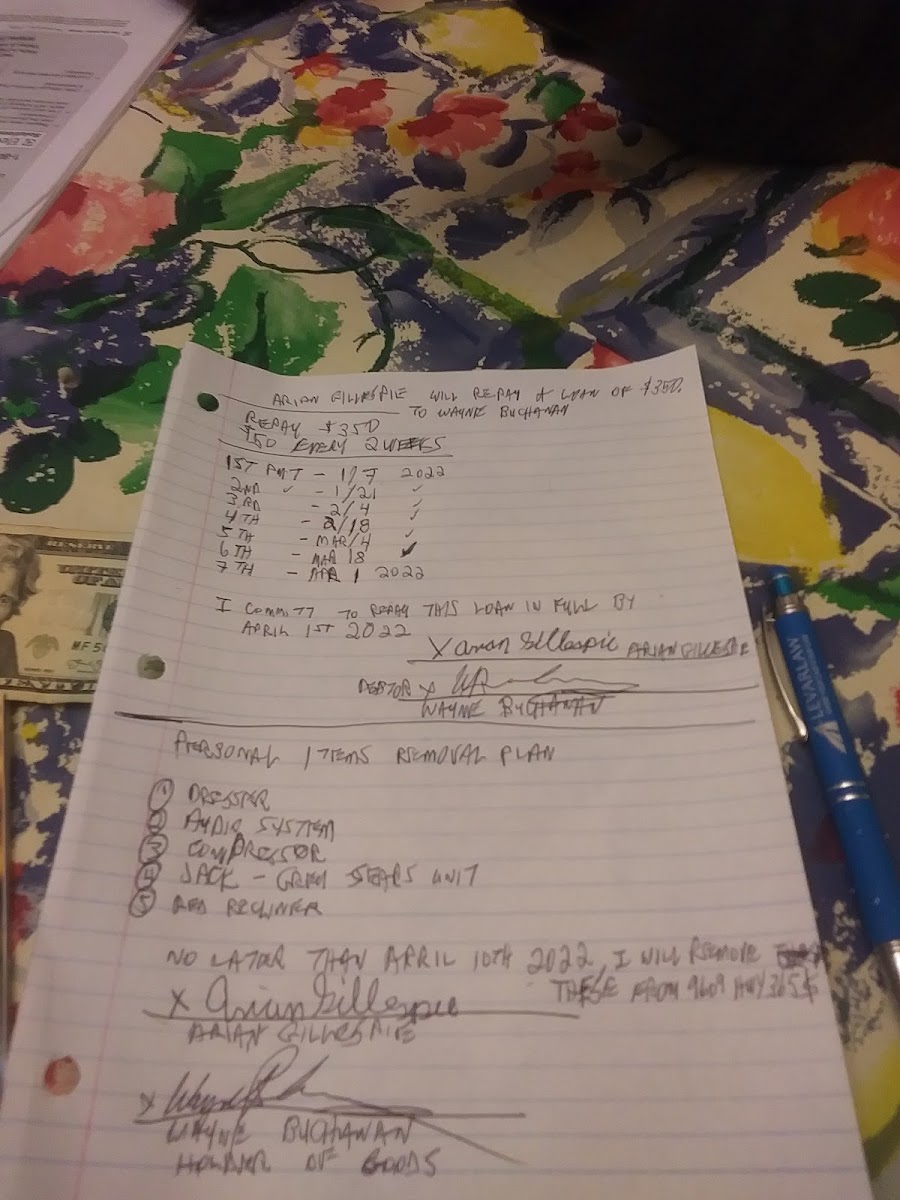 ARIAN GILLESPIE WILL REPAY A LOAN OF $350.
TO WAYNE BUCHANAN
REPAY $350
$50 EVERY 2 WEEKS
1ST PMT - 1/7 2022
2ND ✓ - 1/21 ✓
3RD - 2/4 ✓
4TH - 2/18 ✓
5TH - MAR/4 ✓
6TH - MAR 18 ✓
7TH - APR 1 2022
I COMMITT TO REPAY THIS LOAN IN FULL BY
APRIL 1ST 2022
X Arian Gillespie ARIAN GILLESPIE
DEBTOR X
WAYNE BUCHANAN
PERSONAL ITEMS REMOVAL PLAN
1 DRESSER
2 AUDIO SYSTEM
3 COMPRESSOR
4 JACK - GREY SEARS UNIT
5 RED RECLINER
NO LATER THAN APRIL 10TH 2022, I WILL REMOVE
THESE FROM 9609 HWY 365 S
X Arian Gillespie
ARIAN GILLESPIE
X Wayne
WAYNE BUCHANAN
HOLDER OF GOODS
LEVARLAW
RESERVE
UNITED
OF A